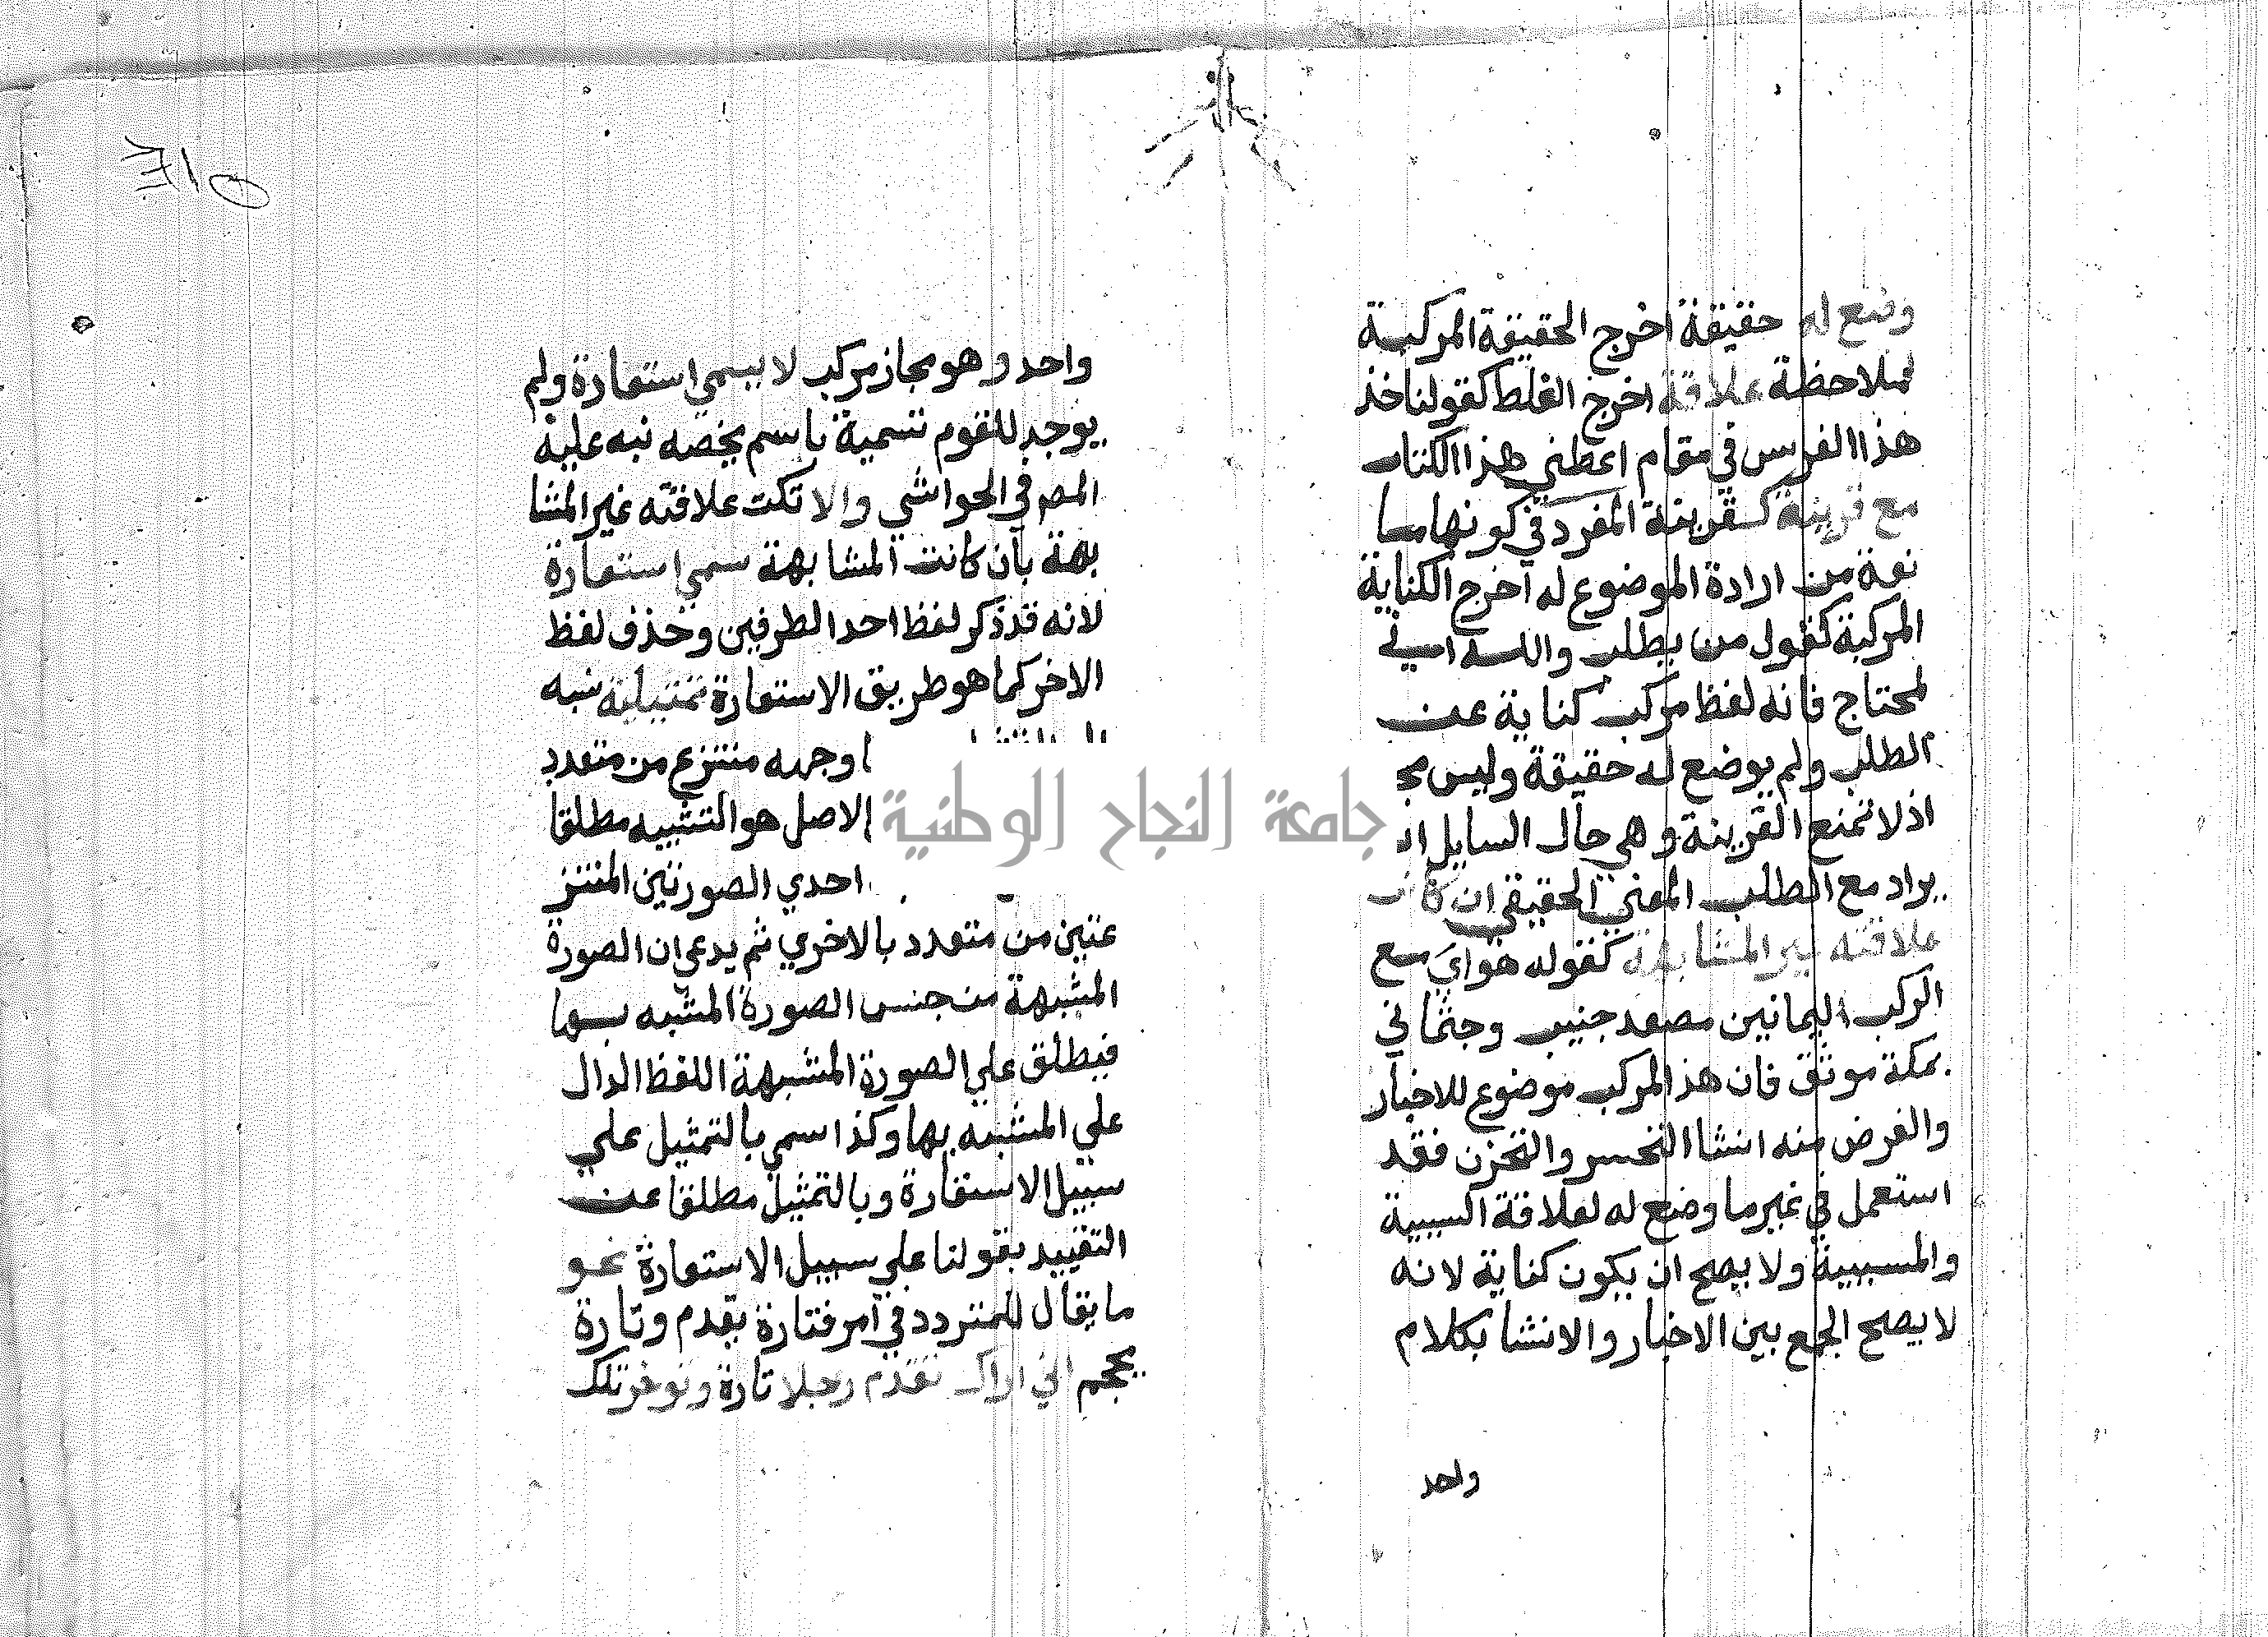 وضع له حقيقة اخرج الحقيقة المركبة
لملاحظة علاقة اخرج الغلط كقولنا خذ
هذا الفرس في مقام اعطني هذا الكتاب
مع قرينة كقرينة المفرد في كونها ما
نعة من ارادة الموضوع له اخرج الكناية
المركبة كقول من يطلب والله اني
لمحتاج فانه لفظ مركب كناية عن
الطلب ولم يوضع له حقيقة وليس مج
اذ لا تمنع القرينة وهي حال السايل ان
يراد مع الطلب المعني الحقيقي ان كانت
علاقته غير المشابهة كقوله هواي مع
الركب اليمانين مصعد جنيب وجثماني
بمكة موثق فان هذا المركب موضوع للاخبار
والغرض منه انشا التحسر والتحزن فقد
استعمل في غير ما وضع له لعلاقة السببية
والمسببية ولا يصح ان يكون كناية لانه
لا يصح الجمع بين الاخبار والانشا بكلام
واحد
واحد وهو مجاز مركب لا يسمي استعارة ولم
يوجد للقوم تسمية باسم يخصه نبه عليه
المص في الحواشي والا تكن علاقته غير المشا
بهة بان كانت المشابهة سمي استعارة
لانه قد ذكر لفظ احد الطرفين وحذف لفظ
الاخر كما هو طريق الاستعارة تمثيلية شبه
وجهه منتزع من متعدد
الاصل هو التشبيه مطلقا
احدي الصورتين المنتز
عتين من متعدد بالاخري ثم يدعي ان الصورة
المشبهة من جنس الصورة المشبه بها
فيطلق علي الصورة المشبهة اللفظ الدال
علي المشبه بها وكذا سمي بالتمثيل علي
سبيل الاستعارة وبالتمثيل مطلقا عن
التقييد بقولنا علي سبيل الاستعارة نحو
ما يقال للمتردد في امر فتارة يقدم وتارة
يحجم اني اراك تقدم رجلا تارة وتوخر تلك
جامعة النجاح الوطنية